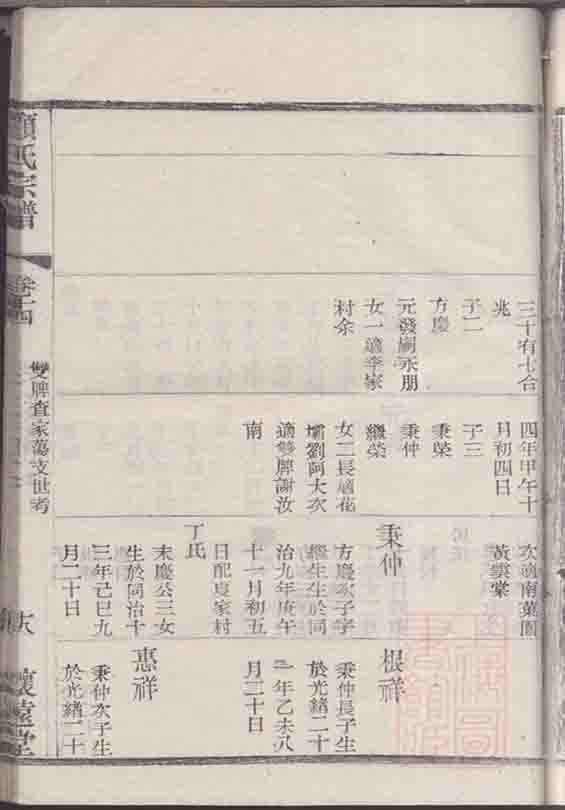 三十有七合
兆
子二
方慶
元發嗣永朋
女一適李家
村余
四年甲午十
月初四日
子三
秉榮
秉仲
繼榮
女二長適花
壩劉阿大次
適雙牌謝汝
南
次適南葉園
黃雲棠
秉仲
方慶次子字
繼生生於同
治九年庚午
十一月初五
日配夏家村
丁氏
末慶公三女
生於同治十
三年己巳九
月二十日
根祥
秉仲長子生
於光緒二十
一年乙未八
月二十日
惠祥
秉仲次子生
於光緒二十
氏宗譜
卷十四
雙牌査家蕩支世考
懷遠堂